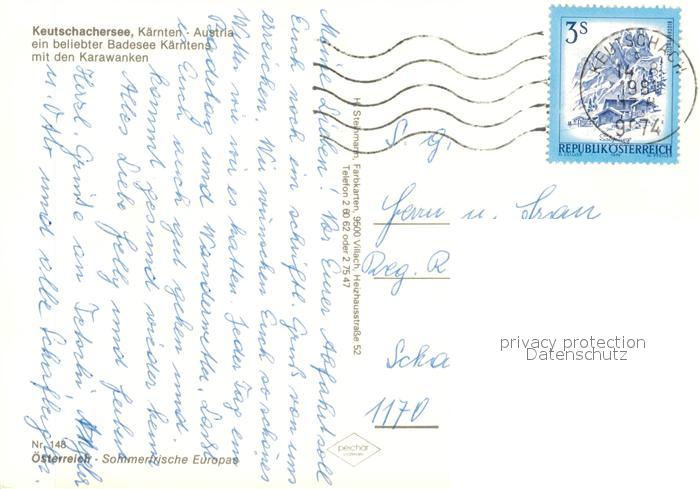 Keutschachersee, Kärnten - Austria
ein beliebter Badesee Kärntens
mit den Karawanken
Meine Lieben! Vor Eurer Abfahrt soll
Euch noch ein schriftl. Gruß von uns
erreichen. Wir wünschen Euch so schönes
Wetter wie wir es hatten. Jeder Tag ein
Badetag und Wanderwetter. Lasst
es Euch auch gut gehen und
kommt gesund wieder heim
Alles Liebe Helly und
Herzl. Grüße an
u. und alle
H. Stehmann, Farbkarten, 9500 Villach, Heizhausstraße 52
Telefon 2 60 62 oder 2 75 47
3 S
REPUBLIK ÖSTERREICH
KEUTSCHACH
9074
S. g.
Herrn u. Frau
Reg. R
Scha
1170
privacy protection
Datenschutz
Nr. 148
Österreich - Sommerfrische Europas